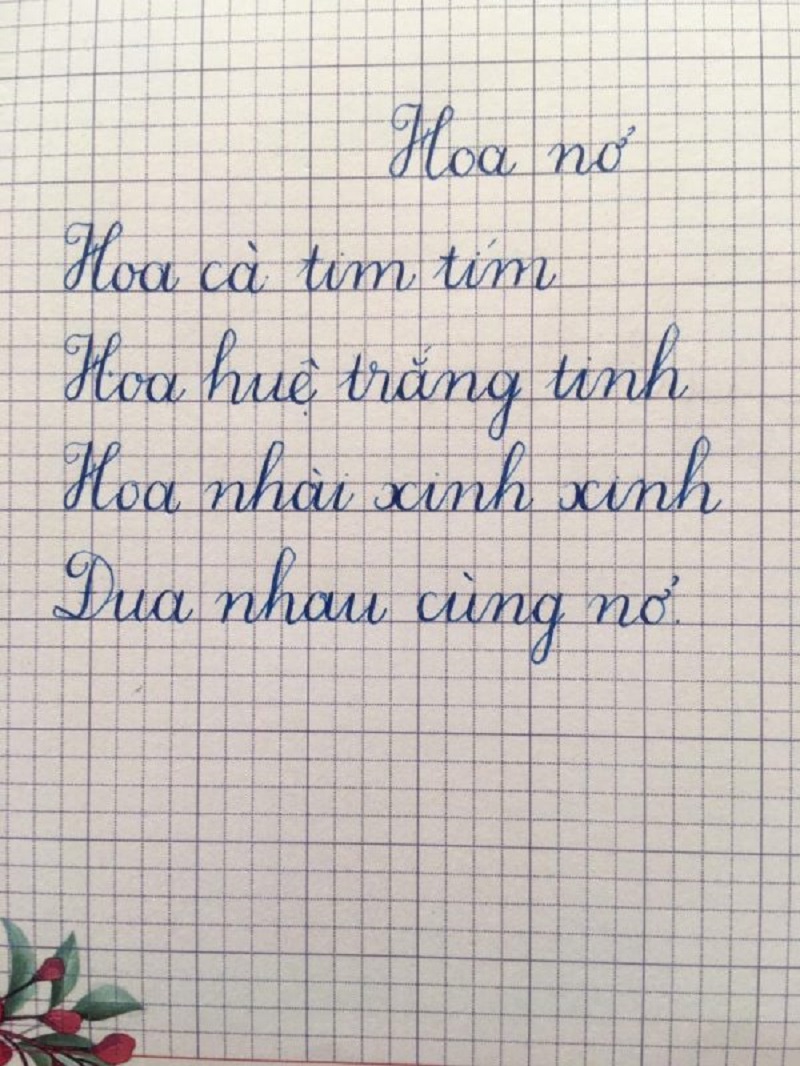 Hoa nở
Hoa cà tim tím
Hoa huệ trắng tinh
Hoa nhài xinh xinh
Đua nhau cùng nở.